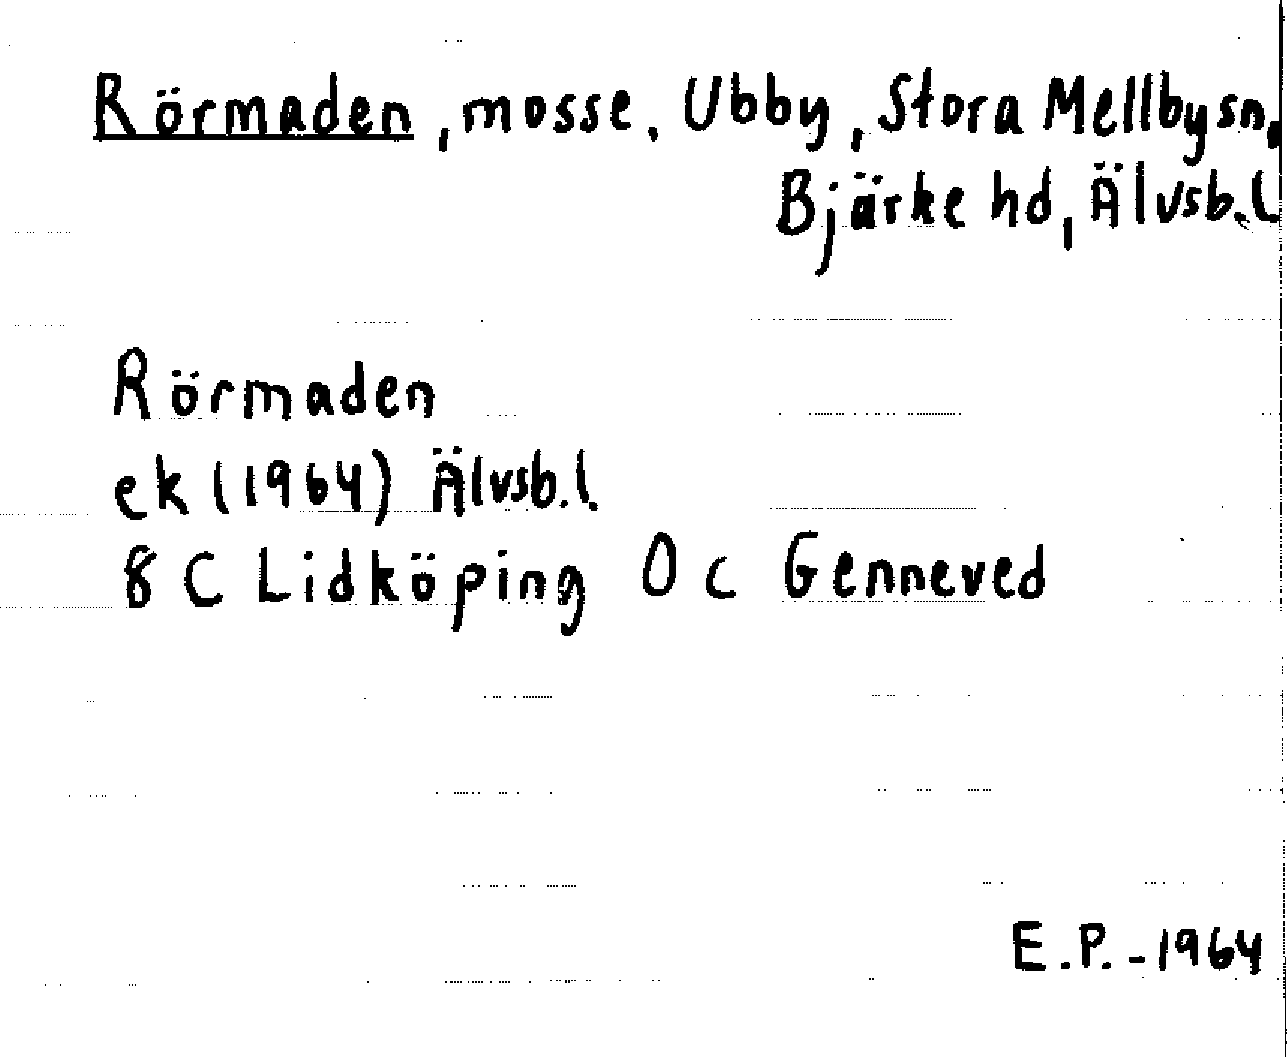 Rörmaden, mosse, Ubby, Stora Mellby sn,
Bjärke hd, Älvsb.l
Rörmaden
ek (1964) Älvsb.l.
8 C Lidköping 0 c Genneved
E.P.-1964